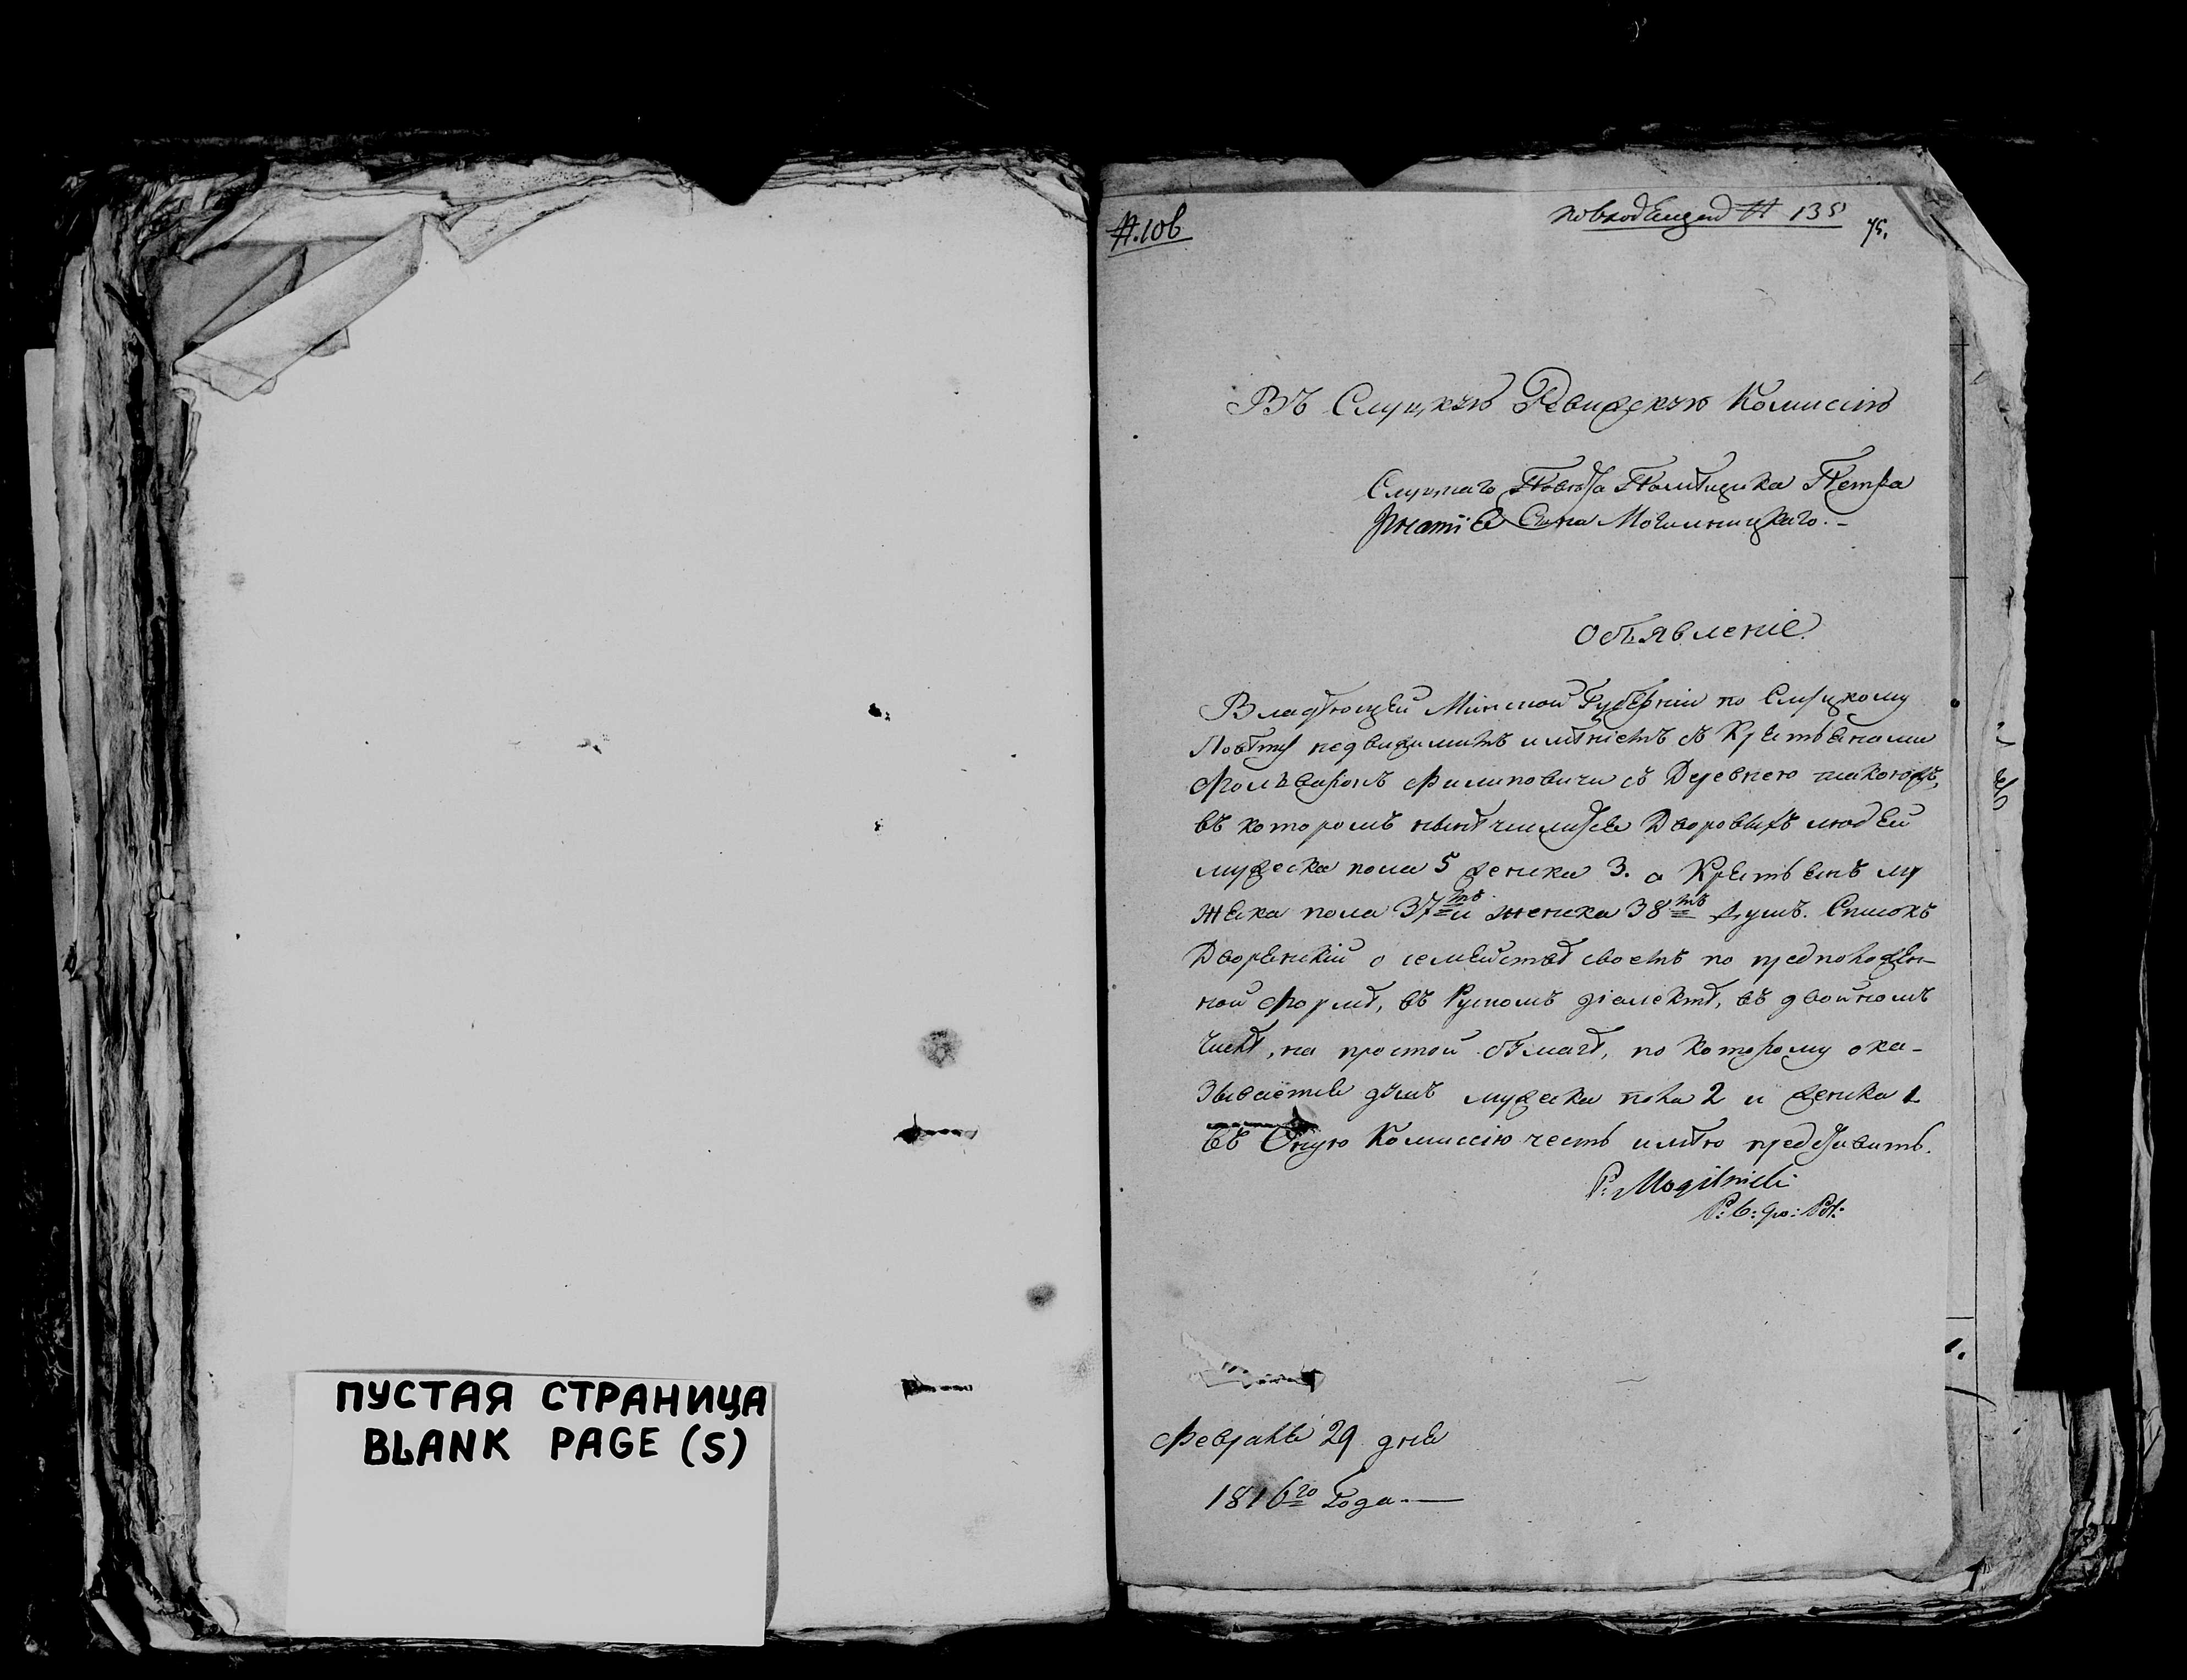 ПУСТАЯ СТРАНИЦА
BLANK PAGE (S)
№.106
по входящей № 135
75.
Въ Слуцкую Ревизскую Комисію
Слуцкаго Повѣта Помѣщика Петра
Игнатія Сына Могильницкаго.-
Объявленіе
Владѣющей Минской Губерніи по Слуцкому
Повѣту недвижимымъ имѣніемъ съ Крестьянами
Фольваркомъ Филиповичи съ Деревнею такоюжъ,
въ которомъ нынѣ числится Дворовыхъ людей
мужеска пола 5 женска 3. а Крестьянъ му
жеска пола 37мъ и женска 38мъ душъ. Списокъ
Дворянскій о семействѣ своемъ по предположен-
ной Формѣ, въ Рускомъ діалектѣ, въ двойномъ
числѣ, на простой бумагѣ, по которому ока-
зывается душъ мужеска пола 2 и женска 1
въ Оную Комиссію честь имѣю представить.
P: Mogilnicki
P: b: gr: Pt:
Февраля 29 дня
1816го Года.—